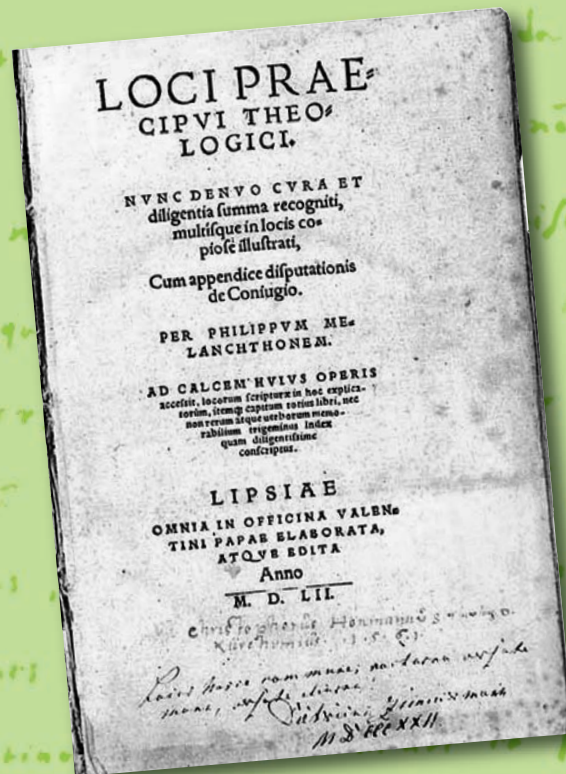 LOCI PRAE⸗
CIPVI THEO⸗
LOGICI.
NVNC DENVO CVRA ET
diligentia ſumma recogniti,
multiſque in locis co⸗
pioſè illuſtrati,
Cum appendice diſputationis
de Coniugio.
PER PHILIPPVM ME⸗
LANCHTHONEM.
AD CALCEM HVIVS OPERIS
acceſsit, locorum ſcripturæ in hoc explica-
torũm, itemq́; capitum totius libri, nec
non rerum atque uerborum memo-
rabilium trigeminus Index
quam diligentiſsime
conſcriptus.
LIPSIAE
OMNIA IN OFFICINA VALEN⸗
TINI PAPAE ELABORATA,
ATQVE EDITA
Anno
M. D. LII.
Christophorus
1.5.6.1